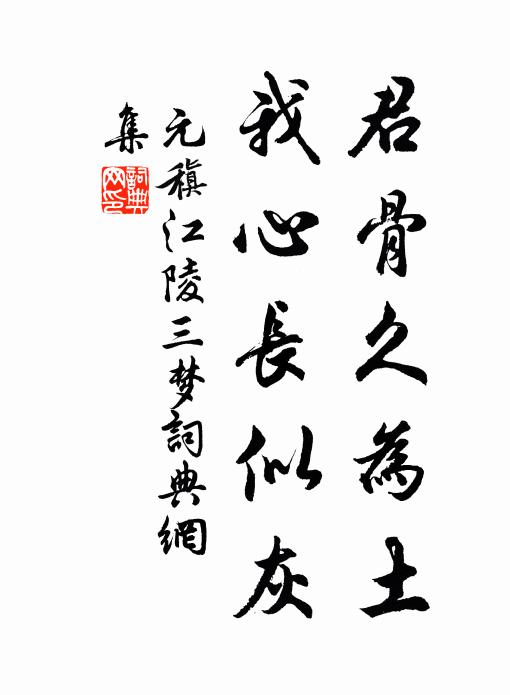 君骨久為土
我心長似灰
元稹江陵三梦詞典網
集
詞典网印